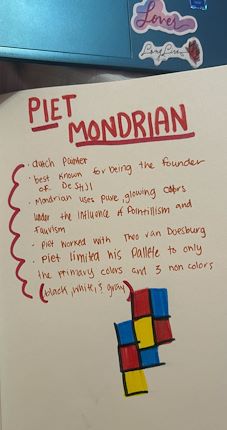 Lover
Long Live
PIET
MONDRIAN
· dutch Painter
· best known for being the founder
OF De Stijl
· Mondrian uses pure, glowing colors
under the influence of Pointillism and
Fauvism
- Piet worked with Theo van Doesburg
· Piet limited his Pallete to only
the primary colors and 3 non colors
(black, white, & gray)